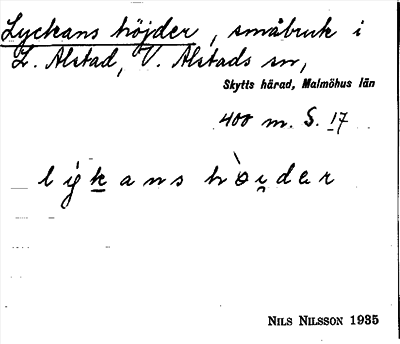 Lyckans höjder, småbruk i
L. Alstad, V. Alstads sn,
Skytts härad, Malmöhus län
400 m. S. 17
lykans hòi̯dər
NILS NILSSON 1935